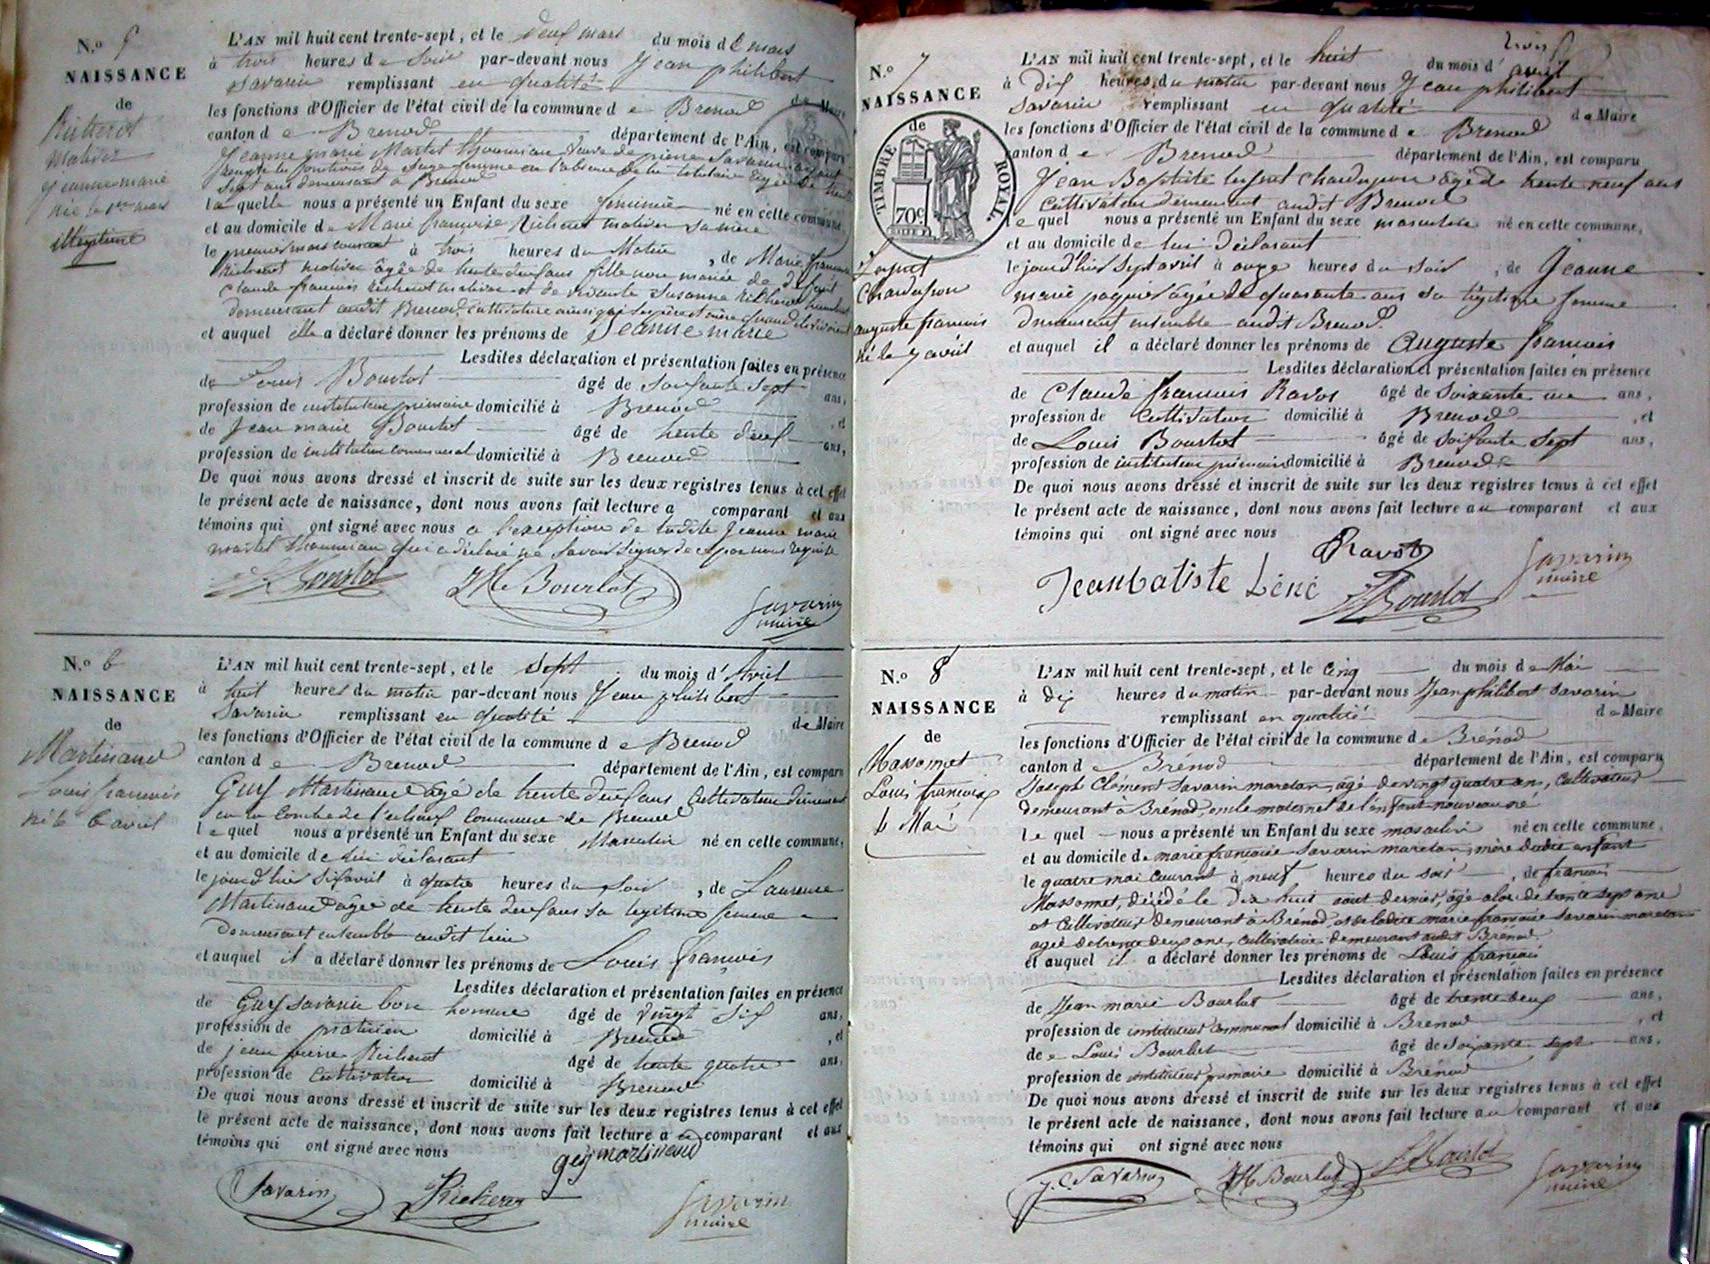 N.º 5
NAISSANCE
de
Richerot
mativer
Jeanne marie
née le 1er mars
illegitime
L'AN mil huit cent trente-sept, et le deux mars du mois de mars
à trois heures de soir par-devant nous Jean philibert
Savarin remplissant en qualité de Maire
les fonctions d'Officier de l'état civil de la commune de Brenod
canton de Brenod, département de l'Ain, est comparu
Jeanne marie Martet veuve de pierre Savarin
sage femme en l'absence de
Sept ans demeurant à Brenod
laquelle nous a présenté un Enfant du sexe feminin né en cette commune,
et au domicile de Marie françoise Richerot mativer sa mere
le premier mars courant à trois heures du Matin, de Marie françoise
Richerot mativer âgée de trente deux ans fille non mariée de
claude francois Richerot mativer et de Susanne Richerot
demeurant audit Brenod, cultivatrice ainsi que
et auquel elle a déclaré donner les prénoms de Jeanne marie
Lesdites déclaration et présentation faites en présence
de Louis Bourlot âgé de Soixante Sept ans,
profession de instituteur primaire domicilié à Brenod, et
de Jean marie Bourlot âgé de trente deux ans,
profession de instituteur communal domicilié à Brenod
De quoi nous avons dressé et inscrit de suite sur les deux registres tenus à cet effet
le présent acte de naissance, dont nous avons fait lecture a comparant et aux
témoins qui ont signé avec nous a l'exception de ladite Jeanne marie
martet qui a déclaré ne savoir signer de ce par nous requise
Bourlot JM Bourlot Savarin
maire
N.º 6
NAISSANCE
de
Martinand
Louis françois
né le 6 avril
L'AN mil huit cent trente-sept, et le sept du mois d'Avril
à huit heures du matin par-devant nous Jean philibert
Savarin remplissant en qualité de Maire
les fonctions d'Officier de l'état civil de la commune de Brenod
canton de Brenod département de l'Ain, est comparu
Guy Martinand âgé de trente deux ans Cultivateur demeurant
en la Combe de commune de Brenod
lequel nous a présenté un Enfant du sexe Masculin né en cette commune,
et au domicile de lui déclarant
le jourd'hier six avril à quatre heures du soir, de Laurence
Martinand âgée de trente deux ans sa legitime femme
demeurant ensemble audit lieu
et auquel il a déclaré donner les prénoms de Louis françois
Lesdites déclaration et présentation faites en présence
de Guy Savarin bon homme âgé de vingt six ans,
profession de praticien domicilié à Brenod, et
de jean pierre Richerot âgé de trente quatre ans,
profession de Cultivateur domicilié à Brenod
De quoi nous avons dressé et inscrit de suite sur les deux registres tenus à cet effet
le présent acte de naissance, dont nous avons fait lecture au comparant et aux
témoins qui ont signé avec nous guy martinand
Savarin Richerot Savarin
maire
N.º 7
NAISSANCE
de
TIMBRE ROYAL
70c
Chardeyron
auguste francois
né le 7 avril
L'AN mil huit cent trente-sept, et le huit du mois d'avril
à dix heures du matin par-devant nous Jean philibert
Savarin remplissant en qualité de Maire
les fonctions d'Officier de l'état civil de la commune de Brenod
canton de Brenod département de l'Ain, est comparu
Jean Baptiste âgé de trente neuf ans
Cultivateur demeurant audit Brenod
lequel nous a présenté un Enfant du sexe masculin né en cette commune,
et au domicile de lui déclarant
le jourd'hier Sept avril à onze heures du soir, de Jeanne
marie âgée de quarante ans sa légitime femme
demeurant ensemble audit Brenod
et auquel il a déclaré donner les prénoms de Auguste francois
Lesdites déclaration et présentation faites en présence
de Claude francois Ravot âgé de soixante un ans,
profession de Cultivateur domicilié à Brenod, et
de Louis Bourlot âgé de Soixante Sept ans,
profession de instituteur primaire domicilié à Brenod
De quoi nous avons dressé et inscrit de suite sur les deux registres tenus à cet effet
le présent acte de naissance, dont nous avons fait lecture au comparant et aux
témoins qui ont signé avec nous
Ravot Savarin
maire
Jean batiste Léné Bourlot
N.º 8
NAISSANCE
de
Massomet
Louis françois
4 Mai
L'AN mil huit cent trente-sept, et le cinq du mois de Mai
à dix heures du matin par-devant nous Jean philibert Savarin
remplissant en qualité de Maire
les fonctions d'Officier de l'état civil de la commune de Brénod
canton de Brénod département de l'Ain, est comparu
Joseph Clément Savarin maretan, âgé de vingt quatre ans, cultivateur
demeurant à Brénod, oncle maternel de l'enfant nouveau né
lequel nous a présenté un Enfant du sexe masculin né en cette commune,
et au domicile de marie françoise Savarin maretan, mère dudit enfant
le quatre mai courant à neuf heures du soir, de francois
Massomet, décédé le dix huit aout dernier, âgé alors de trente sept ans
et Cultivateur demeurant à Brénod, et de ladite marie françoise Savarin maretan
agée de trente deux ans, cultivatrice demeurant audit Brénod
et auquel il a déclaré donner les prénoms de Louis francois
Lesdites déclaration et présentation faites en présence
de Jean marie Bourlot âgé de trente deux ans,
profession de instituteur communal domicilié à Brénod, et
de Louis Bourlot âgé de soixante sept ans,
profession de instituteur primaire domicilié à Brénod
De quoi nous avons dressé et inscrit de suite sur les deux registres tenus à cet effet
le présent acte de naissance, dont nous avons fait lecture au comparant et aux
témoins qui ont signé avec nous
J.C. Savarin JM Bourlot Bourlot Savarin
maire